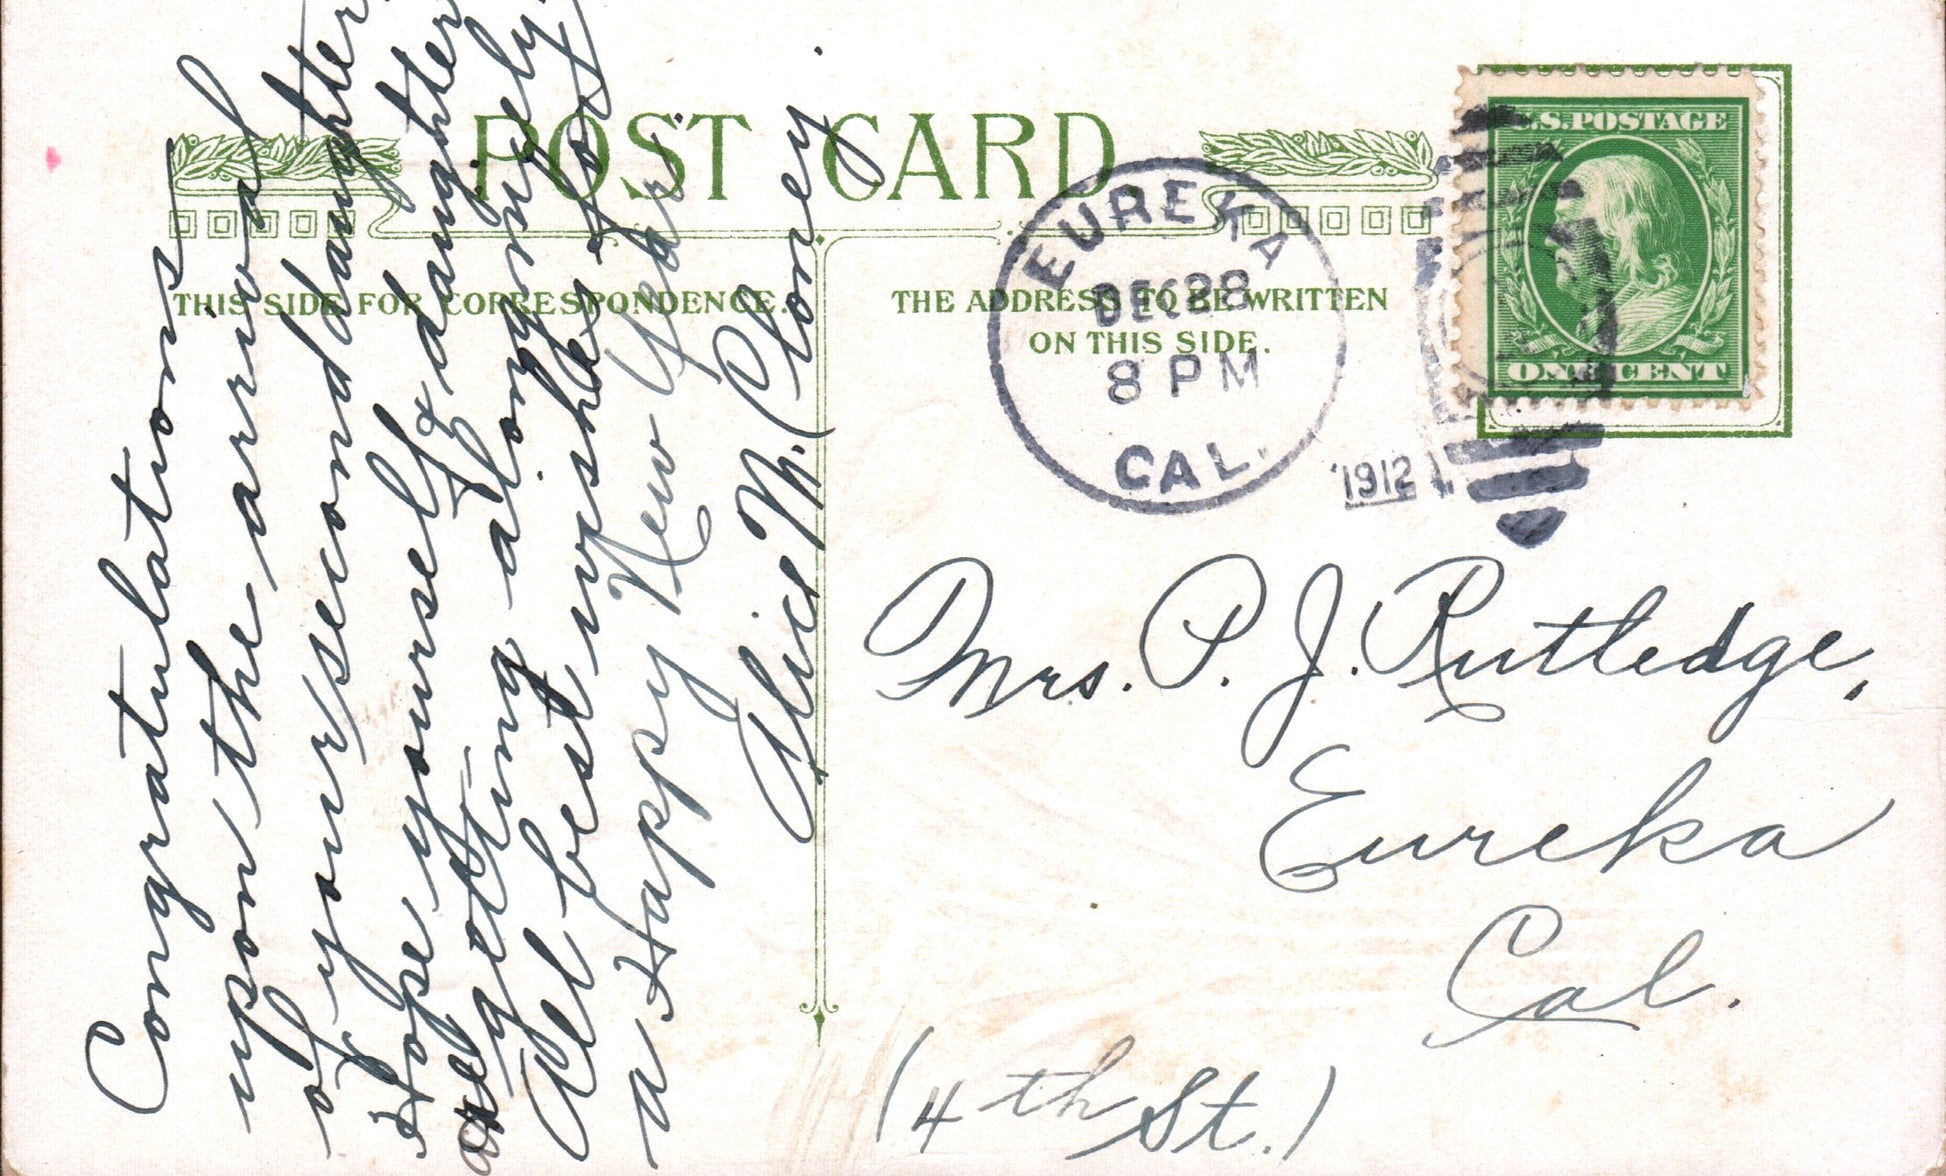 POST CARD.
THIS SIDE FOR CORRESPONDENCE.
THE ADDRESS TO BE WRITTEN
ON THIS SIDE.
U.S. POSTAGE
ONE CENT
EUREKA
DEC 28
8 PM
CAL.
1912
Congratulations
upon the arrival
of your second daughter.
Hope yourself & daughter
are getting along nicely.
All best wishes for
a Happy New Year.
Alice M. Cloney
Mrs. P. J. Rutledge,
Eureka
Cal.
(4th St.)